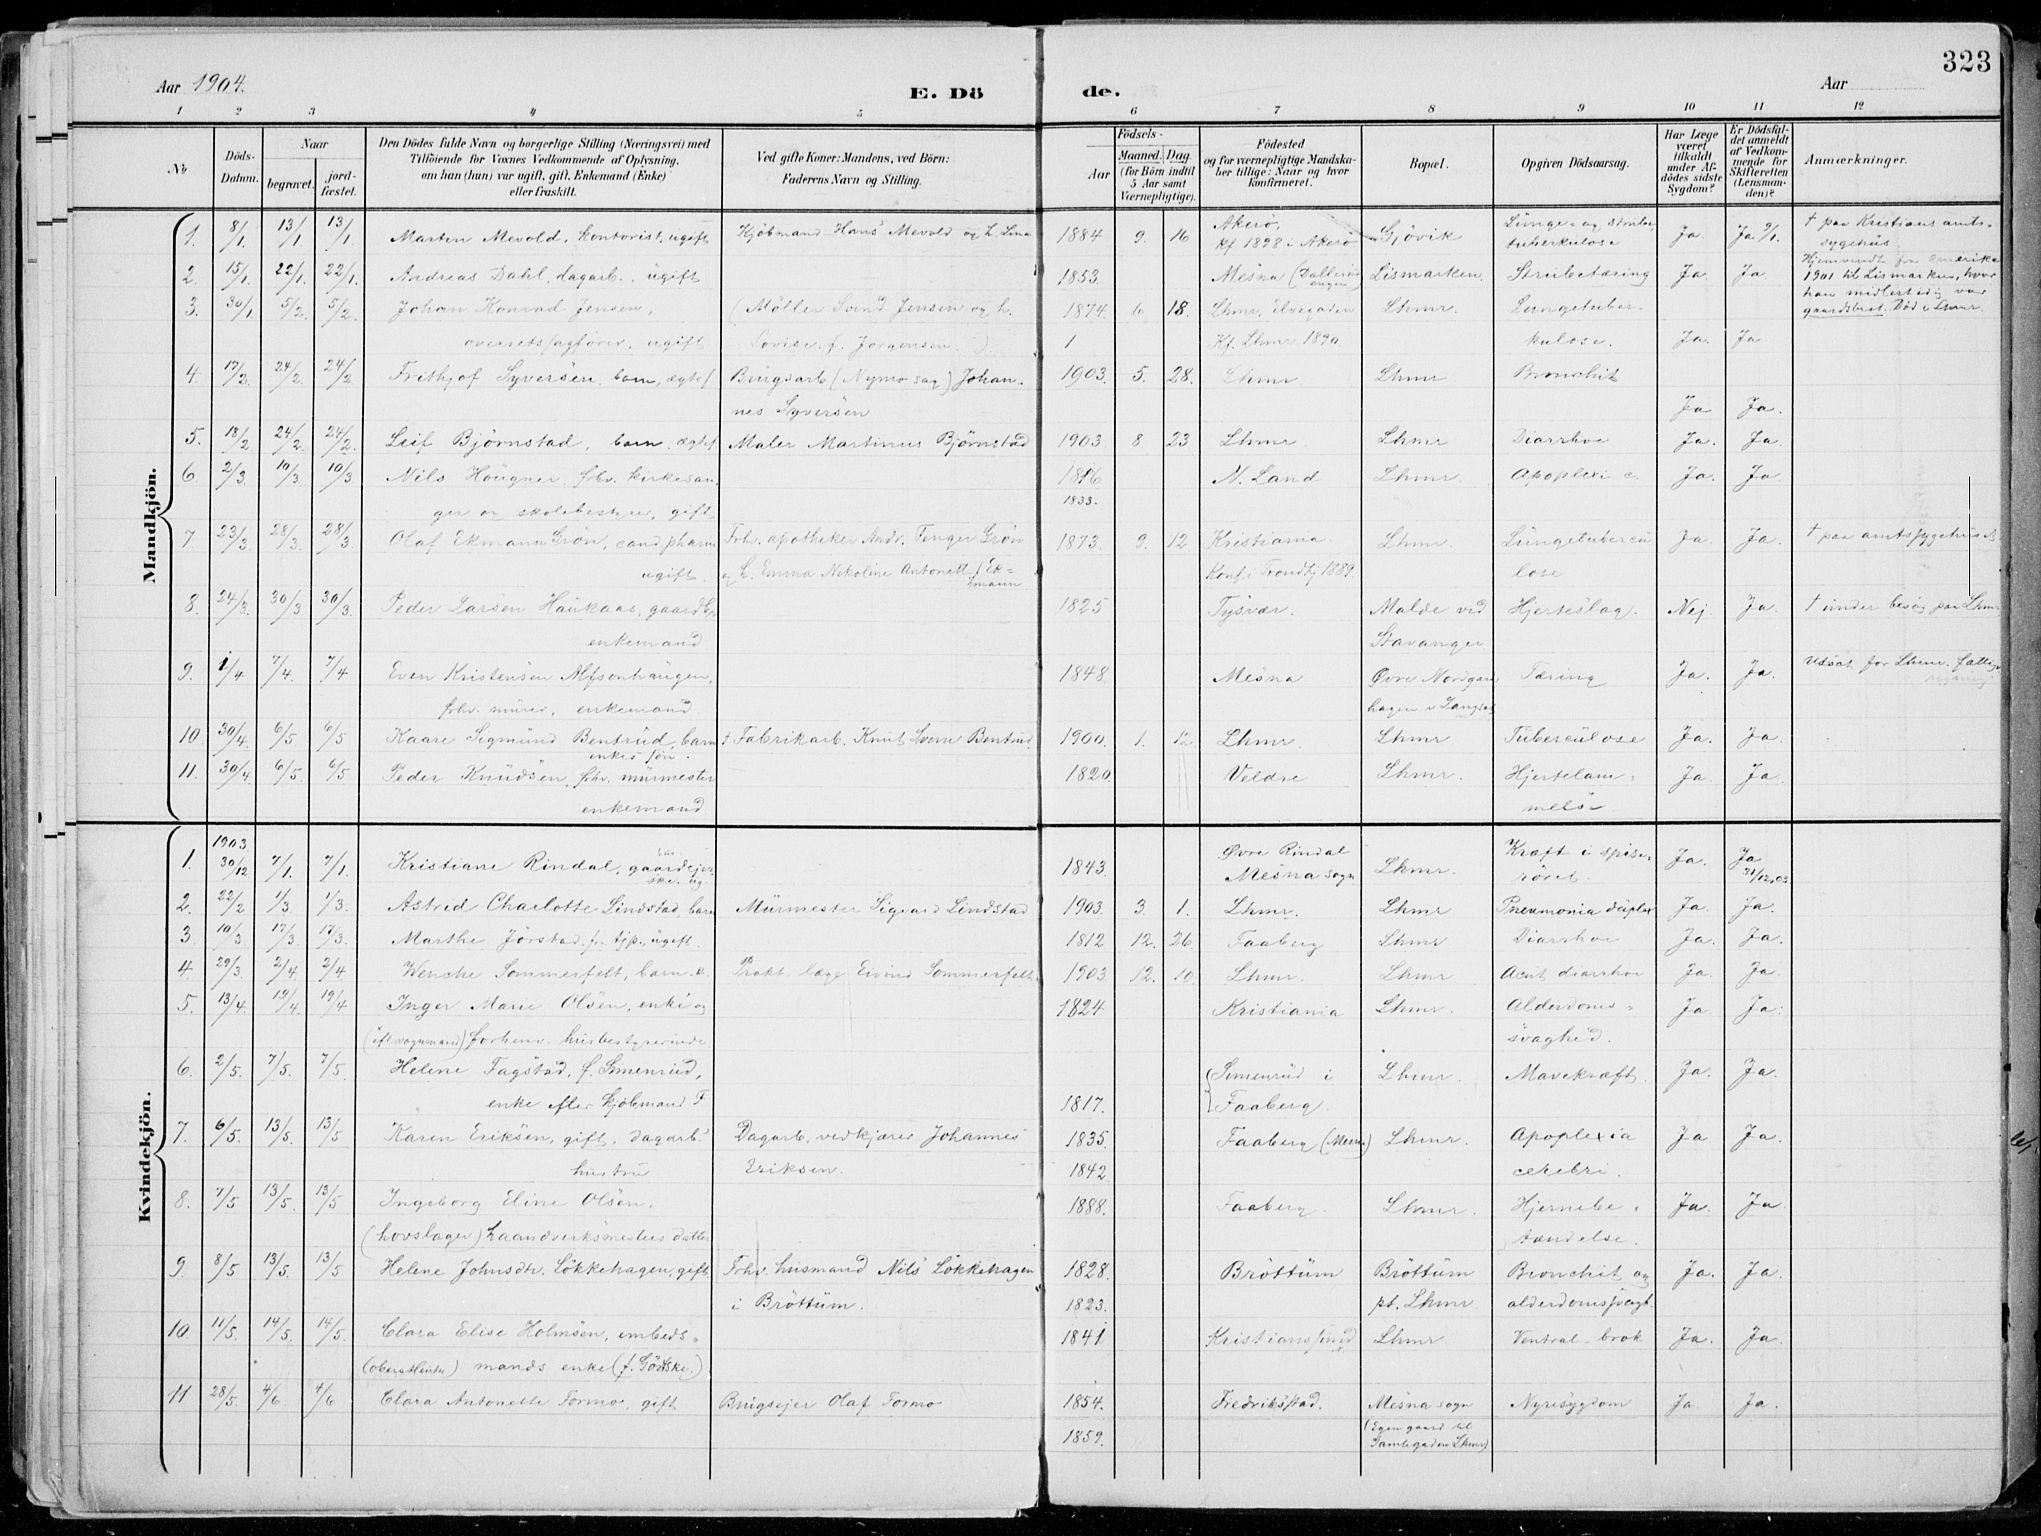 323
Aar 1904.
E. Dö
de.
Aar
1 2 3 4 5 6 7 8 9 10 11 12
No
Döds-Datum.
Naar
begravet.
jord-fæstet.
Den Dödes fulde Navn og borgerlige Stilling (Næringsvei) med
Tilföiende for Voxnes Vedkommende af Oplysning,
om han (hun) var ugift, gift, Enkemand (Enke)
eller fraskilt.
Ved gifte Koner: Mandens, ved Börn:
Faderens Navn og Stilling.
Födsels-
Aar
Maaned. Dag.
(for Börn indtil
5 Aar samt
Værnepligtige).
Födested
og for værnepligtige Mandska-
ber tillige: Naar og hvor
konfirmeret.
Bopæl.
Opgiven Dödsaarsag.
Har Læge
været
tilkaldt
under Af-
dödes sidste
Sygdom?
Er Dödsfal-
det anmeldt
af Vedkom-
mende for
Skifteretten
(Lensman-
den)?
Anmærkninger.
Mandkjön.
1. 8/1 13/1 13/1 Marten Mevold, kontorist, ugift Kjöbmand Hans Mevold og h. Lina 1884 9. 16 Akerö, kf. 1898 i Akerö Gjövik Lunge- og strube tuberkulose Ja. Ja 9/1. † paa Kristians amts-sygehus
2. 15/1 22/1. 22/1. Andreas Dahl, dagarb., ugift 1853. Mesna Lismarken. Strubetæring Ja. Ja. Hjemvendt fra Amerika 1901 til Lismarken, hvor han midlertidig var gaardsbest. Död i Lhmr.
3. 30/1 5/2. 5/2. Johan Konrad Jensen, (Möller Svend Jensen og h. 1874. 6 18. Lhmr, Elvegaden Lhmr. Lungetuber-
overretssagförer, ugift Lovise f. Jörgensen.) 1 Kf. Lhmr 1890 kulose. Ja. Ja
4. 17/2. 24/2. 24/2 Frithjof Syversen, barn, ægtef Brugsarb (Nymo sag) Johan- 1903. 5. 28. Lhmr Lhmr Bronchit
nes Syversen Ja Ja.
5. 18/2 24/2. 24/2. Leif Björnstad, barn, ægtef Maler Martinus Björnstad 1903 8 23 Lhmr. Lhmr Diarrhoe Ja. Ja.
6. 2/3. 10/3. 10/3 Nils Hougner, frhv. kirkesan- 1816 N. Land Lhmr. Apoplexi c. Ja. Ja.
ger og skolebestyrer, gift 1833.
7. 23/3. 28/3. 28/3. Olaf Ekmann Grön, cand. pharm Frhv. apotheker Andr. Fenger Grön 1873. 9. 12 Kristiania. Lhmr. Lungetubercu Ja. Ja. † paa amtssygehuset
ugift. og h. Emma Nikoline Antonett f. Ek-mann Konf. i Trondhj 1889. lose
8. 24/3. 30/3 30/3. Peder Larsen Haukaas, gaardbr. 1825 Tysvær. Malde ved Hjerteslag. Nej Ja. † under besög paa Lhmr
enkemand Stavanger
9. 1/4 7/4. 7/4 Even Kristensen Alfsonhaugen, 1848. Mesna Övre Nordgaards Tæring Ja. Ja. Udsat for Lhmr. fattig
frhv. murer, enkemand hagen
10. 30/4. 6/5. 6/5 Kaare Sigmund Bentrud, barn † Fabrikarb. Knut Bentrud 1900. 1. 12 Lhmr. Lhmr Tuberculose Ja. Ja.
enkes sön.
11. 30/4. 6/5. 6/5 Peder Knudsen, frhv. murmester 1820. Veldre Lhmr. Hjertelam- Ja Ja.
enkemand melse
Kvindekjön.
1. 1903 30/12 7/1. 7/1. Kristiane Rindal, gaardejer-ske. ug. 1843. Övre Rindal Mesna sogn Lhmr. Kræft i spise-röret. Ja. Ja 31/12 03
2. 22/2 1/3. 1/3. Astrid Charlotte Lindstad, barn Murmester Sigvard Lindstad 1903. 3. 1. Lhmr. Lhmr Pneumonia duplex Ja. Ja.
3. 10/3. 17/3. 17/3. Marthe Jörstad, fr. tjp., ugift. 1812 12. 26. Faaberg Lhmr Diarrhoe Ja. Ja.
4 29/3 2/4 2/4 Wenche Sommerfelt, barn. æ. Prakt. læge Eivind Sommerfelt 1903 12. 10 Lhmr. Lhmr Acut. diarrhoe Ja. Ja.
5. 13/4. 19/4. 19/4 Inger Marie Olsen, enke og 1824 Kristiania Lhmr. Alderdoms- Ja Ja.
(eft. vognmand) forhenv. husbestyrerinde svaghed.
6. 2/5. 7/5. 7/5. Helene Fagstad, f. Smenrud, Smenrud i Lhmr. Mavekræft. Ja. Ja.
enke efter kjöbmand F. 1817. Faaberg.
7. 6/5. 13/5. 13/5 Karen Eriksen, gift, dagarb. Dagarb. vedkjörer Johannes 1835 Faaberg (Mesna) Lhmr. Apoplexia Ja Ja.
hustru Eriksen. 1842 cerebri.
8. 7/5 13/5. 13/5 Ingeborg Eline Olsen. 1888. Faaberg. Lhmr. Hjernebe- Ja. Ja
(hovslager) haandverksmesters datter tændelse.
9. 8/5 13/5. 13/5 Helene Johnsdtr. Lökkehagen, gift Frhv. husmand Nils Lökkehagen 1828. Bröttum Bröttum Bronchit og Ja. Ja.
i Bröttum. 1823. pt. Lhmr. alderdomssvagh.
10 11/5. 14/5. 14/5. Clara Elise Holmsen, embeds- 1841 Kristianssund Lhmr Ventral-brok Ja. Ja.
mands enke (f. Gödske.)
11 28/5. 4/6 4/6 Clara Antonette Formo, gift Brugsejer Olaf Formo 1854. Fredriksstad. Mesna sogn Nyresygdom Ja. Ja.
1859. (Egen gaard til
Gamlegaden Lhmr)